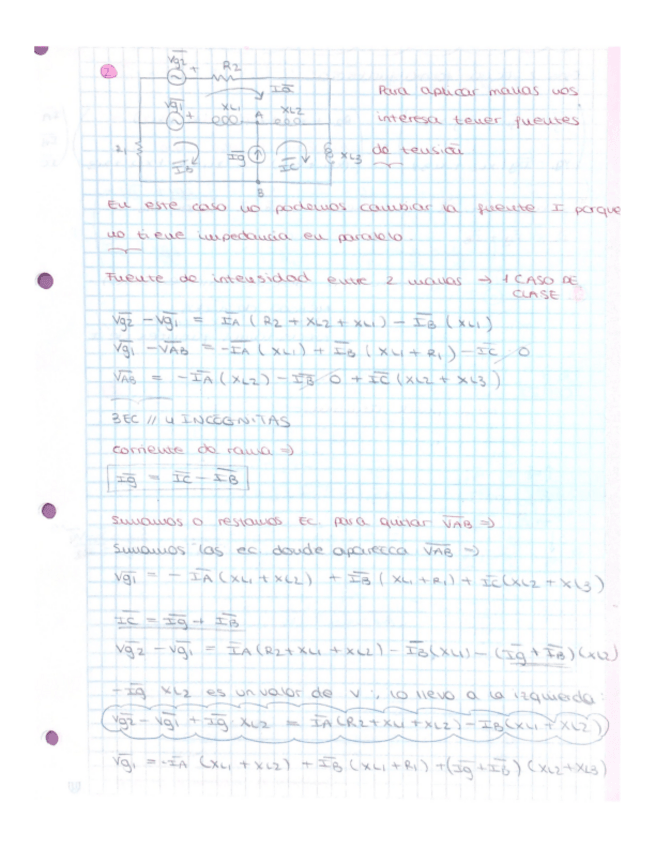 2
Vg2
+
R2
IA
Vg1
+
XL1
A
XL2
IB
Ig
IC
XL3
B
Para aplicar mallas nos
interesa tener fuentes
de tensión
En este caso no podemos cambiar la fuente I porque
no tiene impedancia en paralelo.
Fuente de intensidad entre 2 mallas → 1 CASO DE
CLASE
Vg2 - Vg1 = IA (R2 + XL2 + XL1) - IB (XL1)
Vg1 - VAB = -IA (XL1) + IB (XL1 + R1) - IC 0
VAB = -IA (XL2) - IB 0 + IC (XL2 + XL3)
3EC // 4 INCOGNITAS
corriente de rama =>
Ig = IC - IB
Sumamos o restamos EC. para quitar VAB =>
Sumamos las ec. donde aparezca VAB =>
Vg1 = - IA (XL1 + XL2) + IB (XL1 + R1) + IC (XL2 + XL3)
IC = Ig + IB
Vg2 - Vg1 = IA (R2 + XL1 + XL2) - IB (XL1) - (Ig + IB) (XL2)
- Ig XL2 es un valor de V ∴ lo llevo a la izquierda:
Vg2 - Vg1 + Ig XL2 = IA (R2 + XL1 + XL2) - IB (XL1 + XL2)
Vg1 = -IA (XL1 + XL2) + IB (XL1 + R1) + (Ig + IB) (XL2 + XL3)